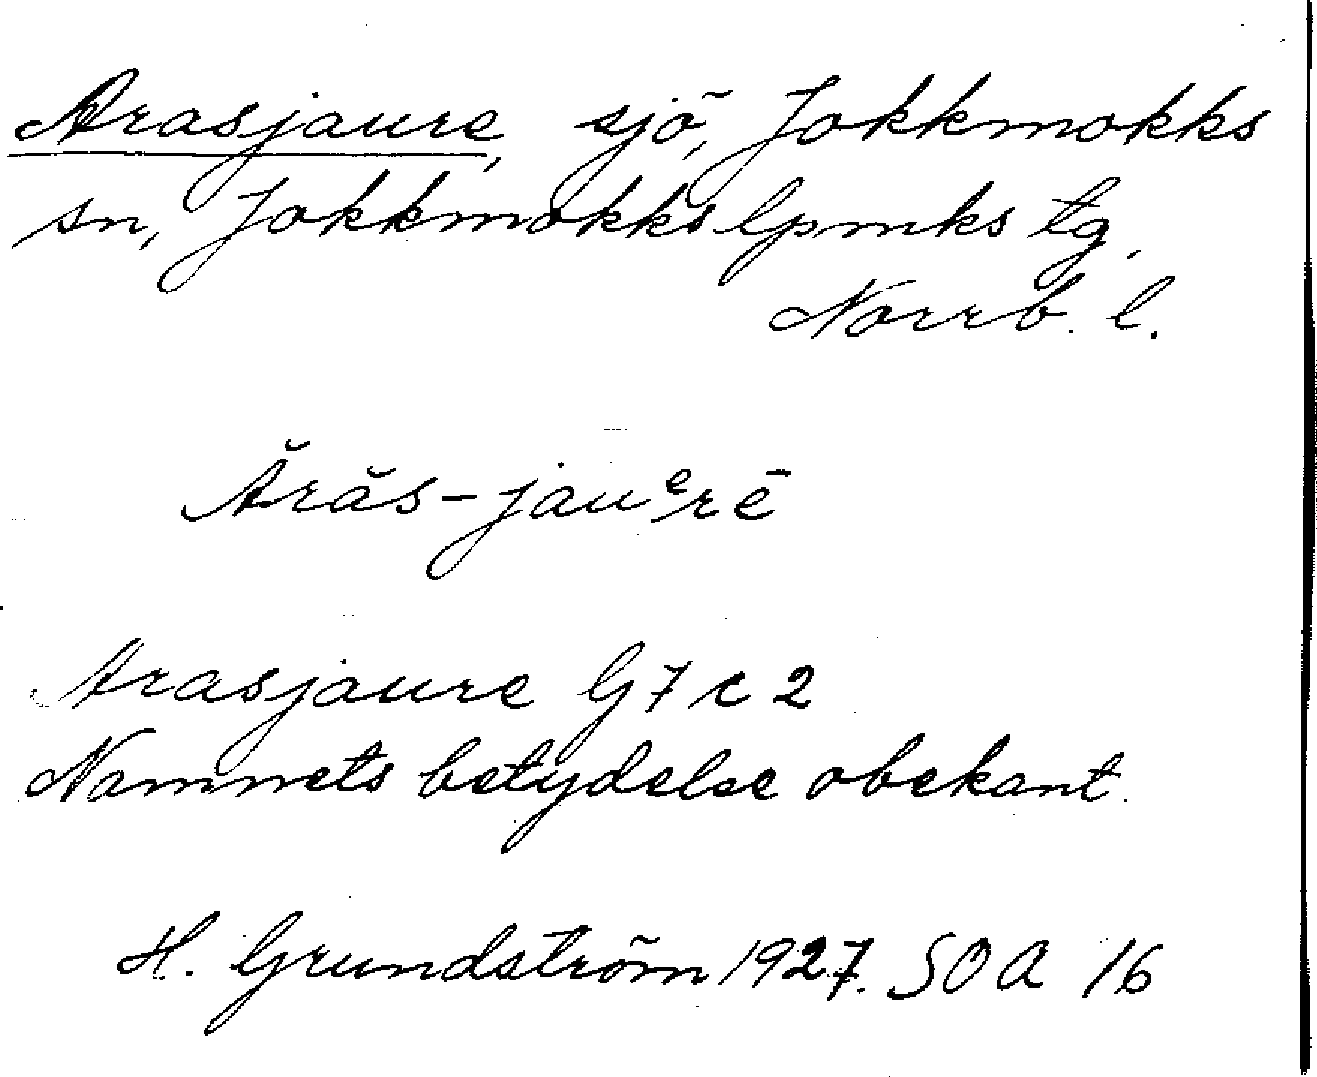 Arasjaure, sjö, Jokkmokks
sn, Jokkmokks lpmks tg.
Norrb. l.
Ărăs-jauᵉrē
Arasjaure G7c2
Namnets betydelse obekant.
H. Grundström 1927. SOA 16